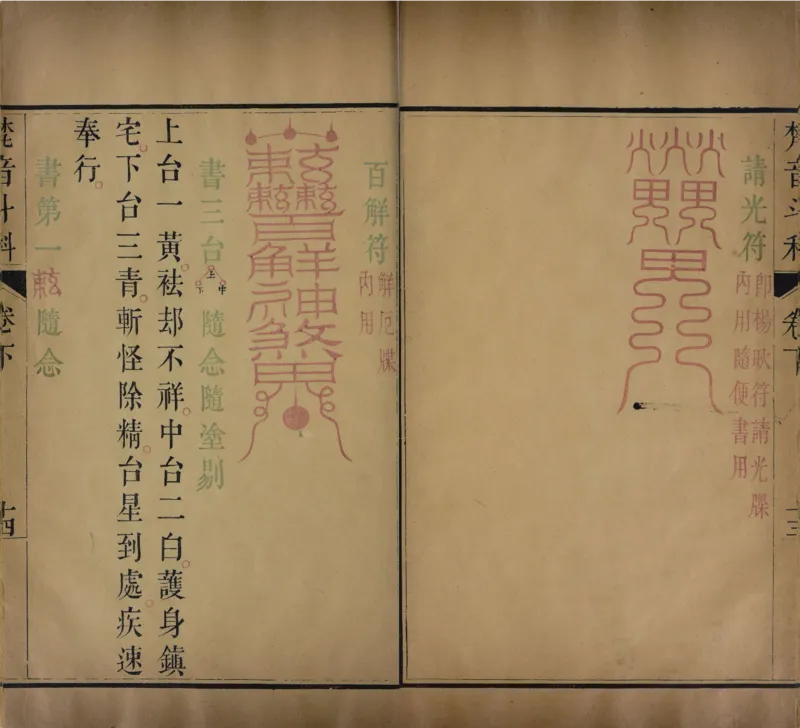 梵音斗科 卷下 十三
請光符
卽楊耿符請光牒
內用隨便書用
百解符
解厄牒
內用
書三台 隨念隨塗剔
上台一黃。祛却不祥。中台二白。護身鎮
宅。下台三青。斬怪除精。台星到處。疾速
奉行。
書第一 隨念
梵音斗科 卷下 十四